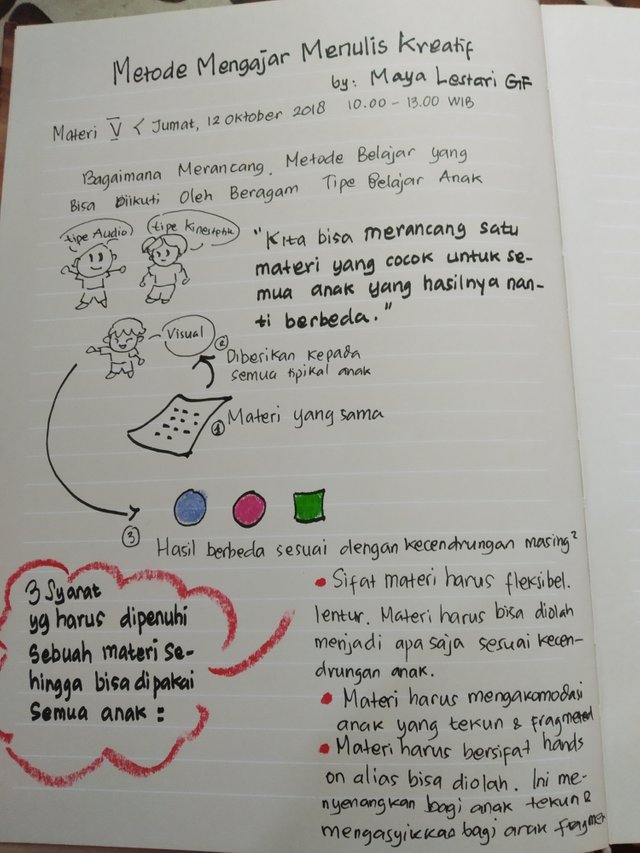 Metode Mengajar Menulis Kreatif
by: Maya Lestari GF
Materi V < Jumat, 12 Oktober 2018 10.00 - 13.00 WIB
Bagaimana Merancang Metode Belajar yang
Bisa Diikuti Oleh Beragam Tipe Belajar Anak
tipe Audio
tipe Kinestetik
"Kita bisa merancang satu
materi yang cocok untuk se-
mua anak yang hasilnya nan-
ti berbeda."
Visual
② Diberikan kepada
semua tipikal anak
① Materi yang sama
③
Hasil berbeda sesuai dengan kecendrungan masing²
3 Syarat
yg harus dipenuhi
sebuah materi se-
hingga bisa dipakai
semua anak :
• Sifat materi harus fleksibel.
lentur. Materi harus bisa diolah
menjadi apa saja sesuai kecen-
drungan anak.
• Materi harus mengakomodasi
anak yang tekun & fragmented
• Materi harus bersifat hands
on alias bisa diolah. Ini me-
nyenangkan bagi anak tekun &
mengasyikkan bagi anak fragmen